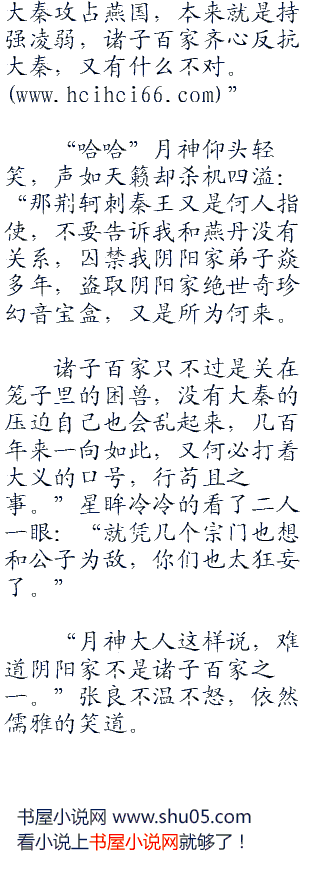 大秦攻占燕国，本来就是持
强凌弱，诸子百家齐心反抗
大秦，又有什么不对。
(www.hcihci66.com)”
“哈哈”月神仰头轻
笑，声如天籁却杀机四溢：
“那荆轲刺秦王又是何人指
使，不要告诉我和燕丹没有
关系，囚禁我阴阳家弟子焱
多年，盗取阴阳家绝世奇珍
幻音宝盒，又是所为何来。
诸子百家只不过是关在
笼子里的困兽，没有大秦的
压迫自己也会乱起来，几百
年来一向如此，又何必打着
大义的口号，行苟且之
事。”星眸冷冷的看了二人
一眼：“就凭几个宗门也想
和公子为敌，你们也太狂妄
了。”
“月神大人这样说，难
道阴阳家不是诸子百家之
一。”张良不温不怒，依然
儒雅的笑道。
书屋小说网 www.shu05.com
看小说上书屋小说网就够了！